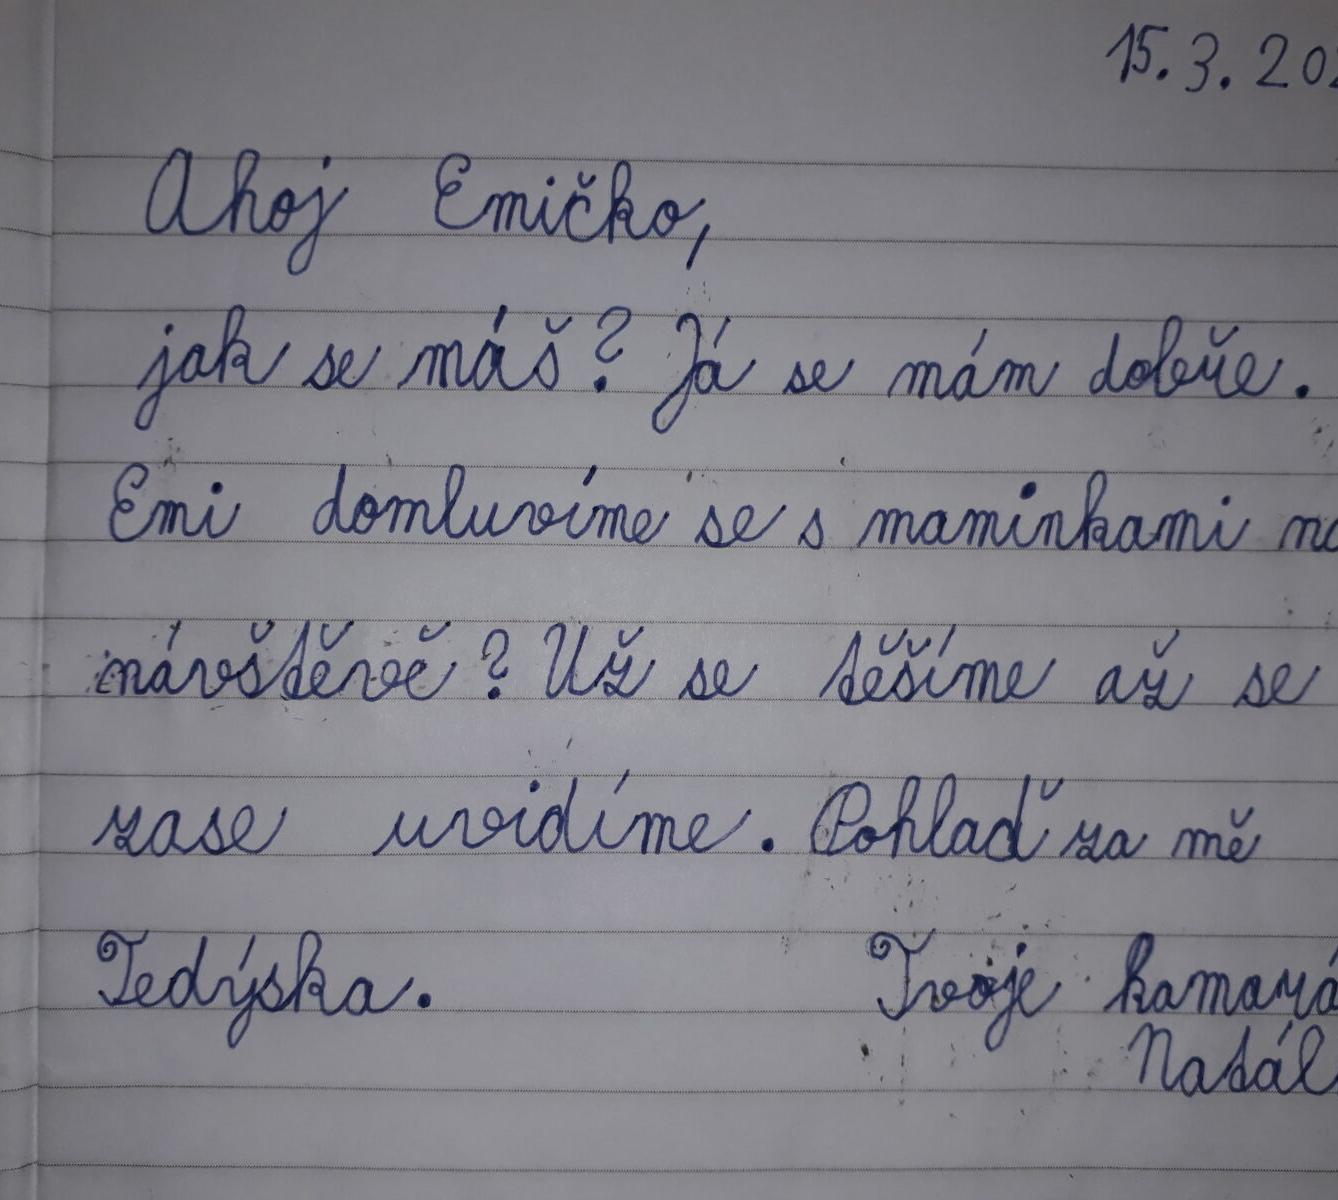 15.3.202
Ahoj Emičko,
jak se máš? Já se mám dobře.
Emi domluvíme se s maminkami na
návštěvě? Už se těšíme až se
zase uvidíme. Pohlaď za mě
Tedýska. Tvoje kamará
Natál